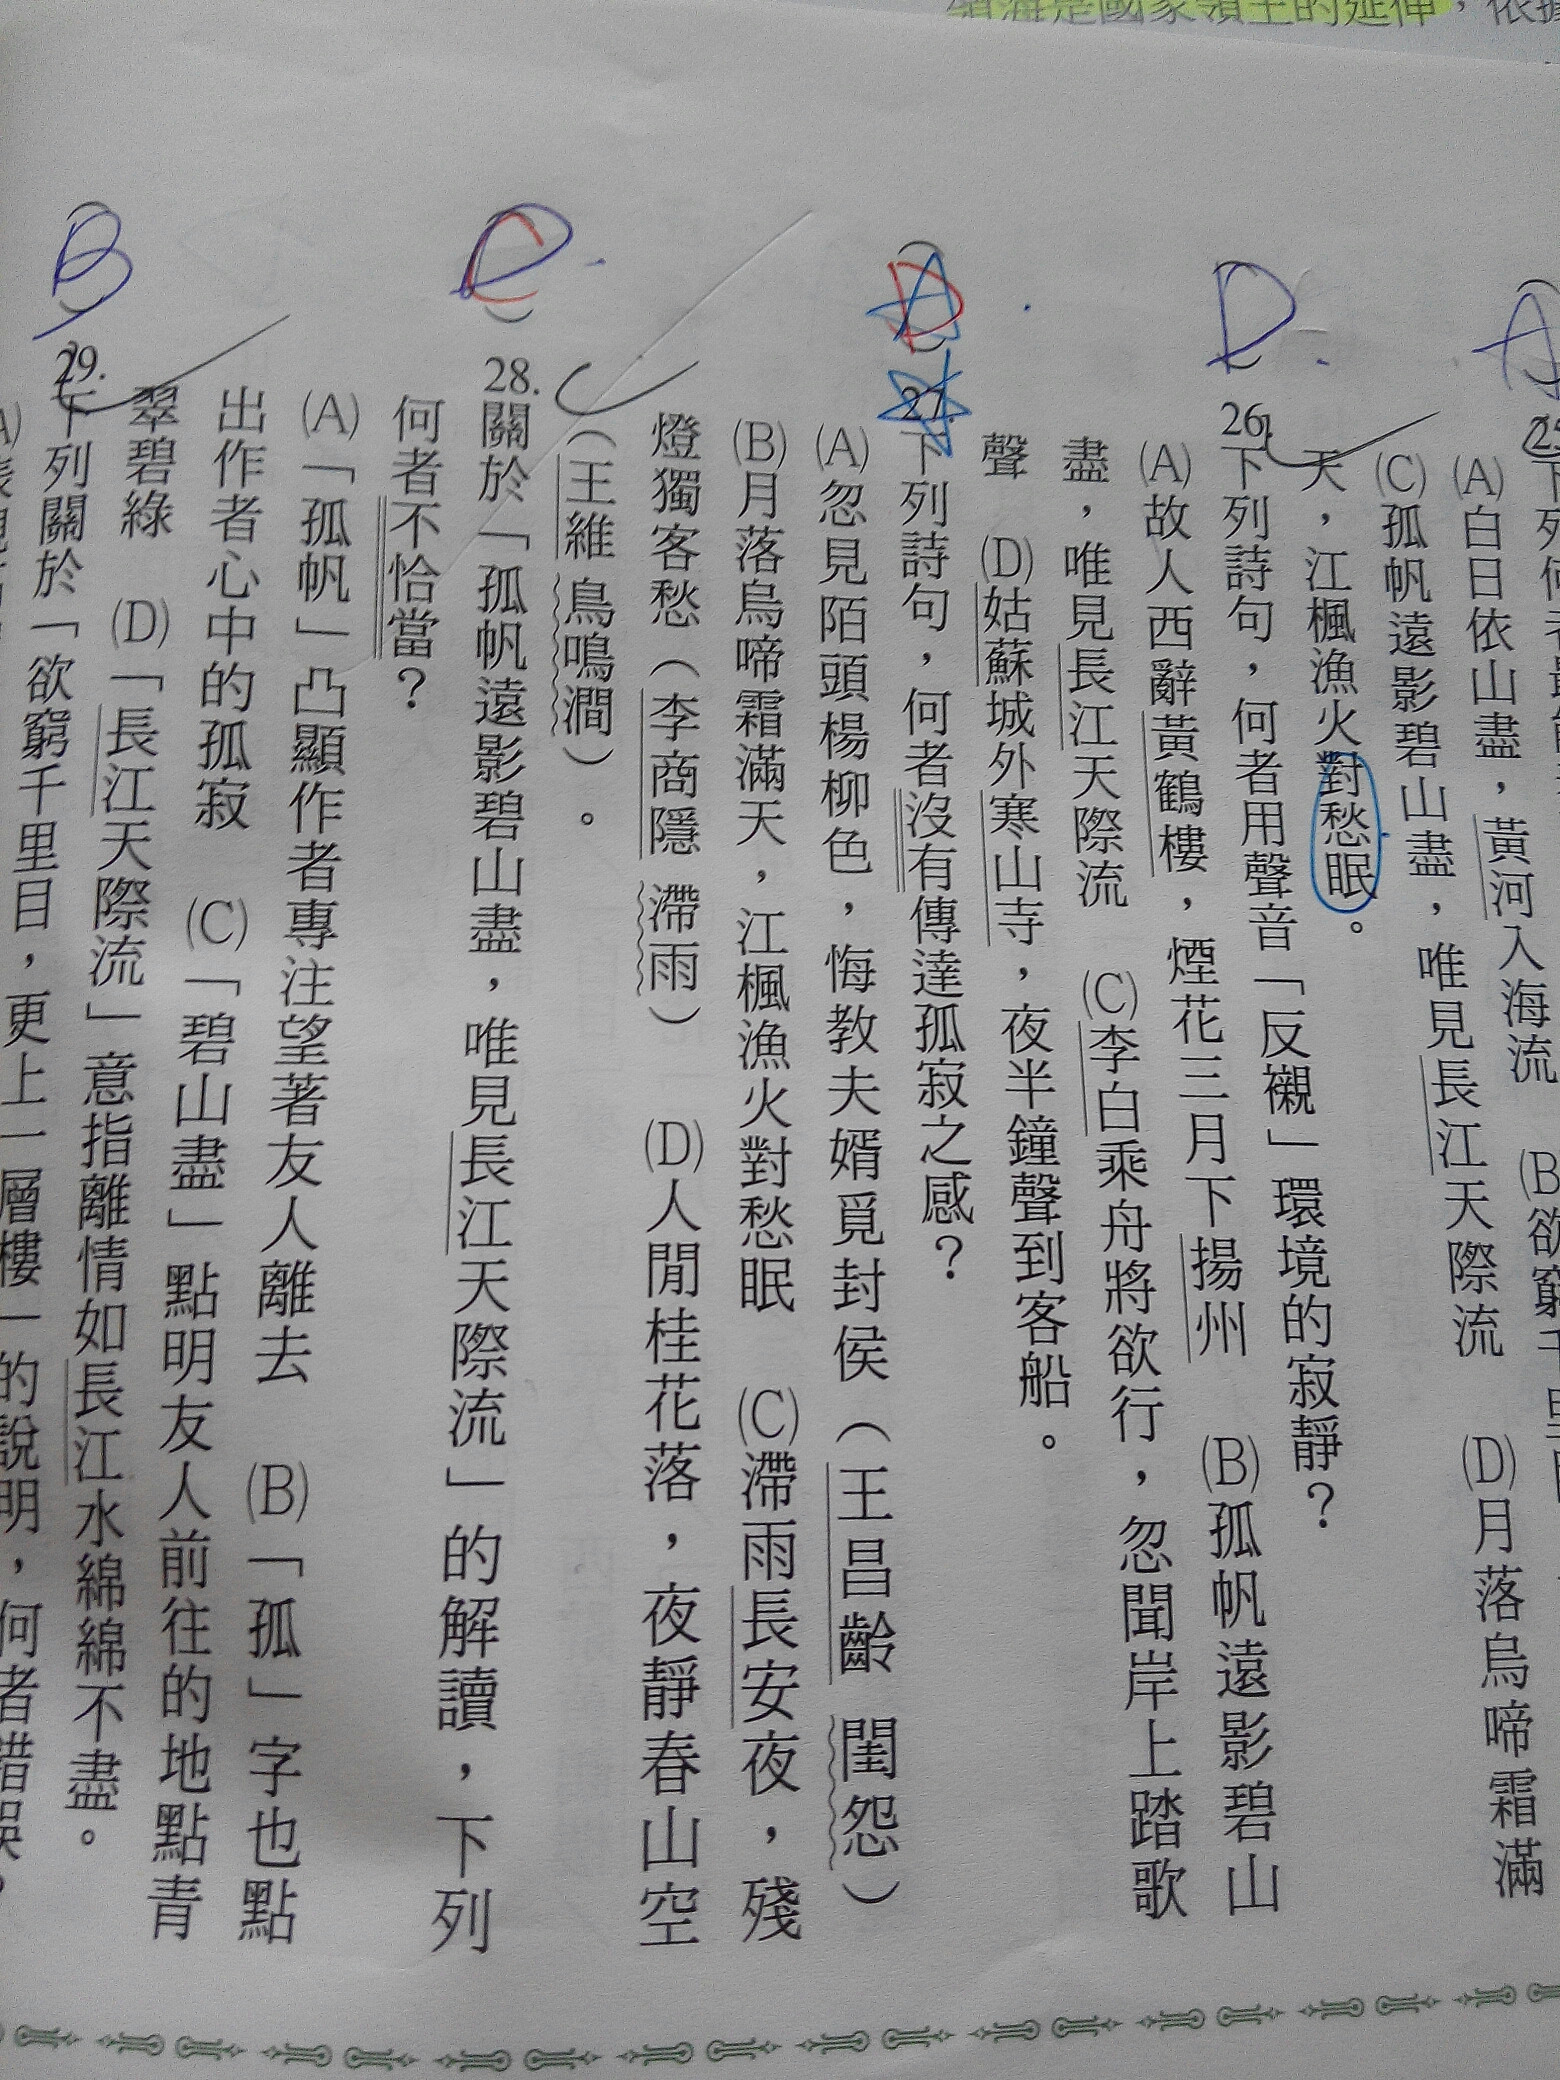 領海是國家領土的延伸,依據
A
下列何者最能
(A)白日依山盡,黃河入海流 (B)欲窮千里目
(C)孤帆遠影碧山盡,唯見長江天際流 (D)月落烏啼霜滿
天,江楓漁火對愁眠。
D
26.下列詩句,何者用聲音「反襯」環境的寂靜?
(A)故人西辭黃鶴樓,煙花三月下揚州 (B)孤帆遠影碧山
盡,唯見長江天際流 (C)李白乘舟將欲行,忽聞岸上踏歌
聲 (D)姑蘇城外寒山寺,夜半鐘聲到客船。
D
27.下列詩句,何者沒有傳達孤寂之感?
(A)忽見陌頭楊柳色,悔教夫婿覓封侯(王昌齡 閨怨)
(B)月落烏啼霜滿天,江楓漁火對愁眠 (C)滯雨長安夜,殘
燈獨客愁(李商隱 滯雨) (D)人閒桂花落,夜靜春山空
(王維 鳥鳴澗)。
C
28.關於「孤帆遠影碧山盡,唯見長江天際流」的解讀,下列
何者不恰當?
(A)「孤帆」凸顯作者專注望著友人離去 (B)「孤」字也點
出作者心中的孤寂 (C)「碧山盡」點明友人前往的地點青
翠碧綠 (D)「長江天際流」意指離情如長江水綿綿不盡。
B
29.下列關於「欲窮千里目,更上一層樓」的說明,何者錯誤?